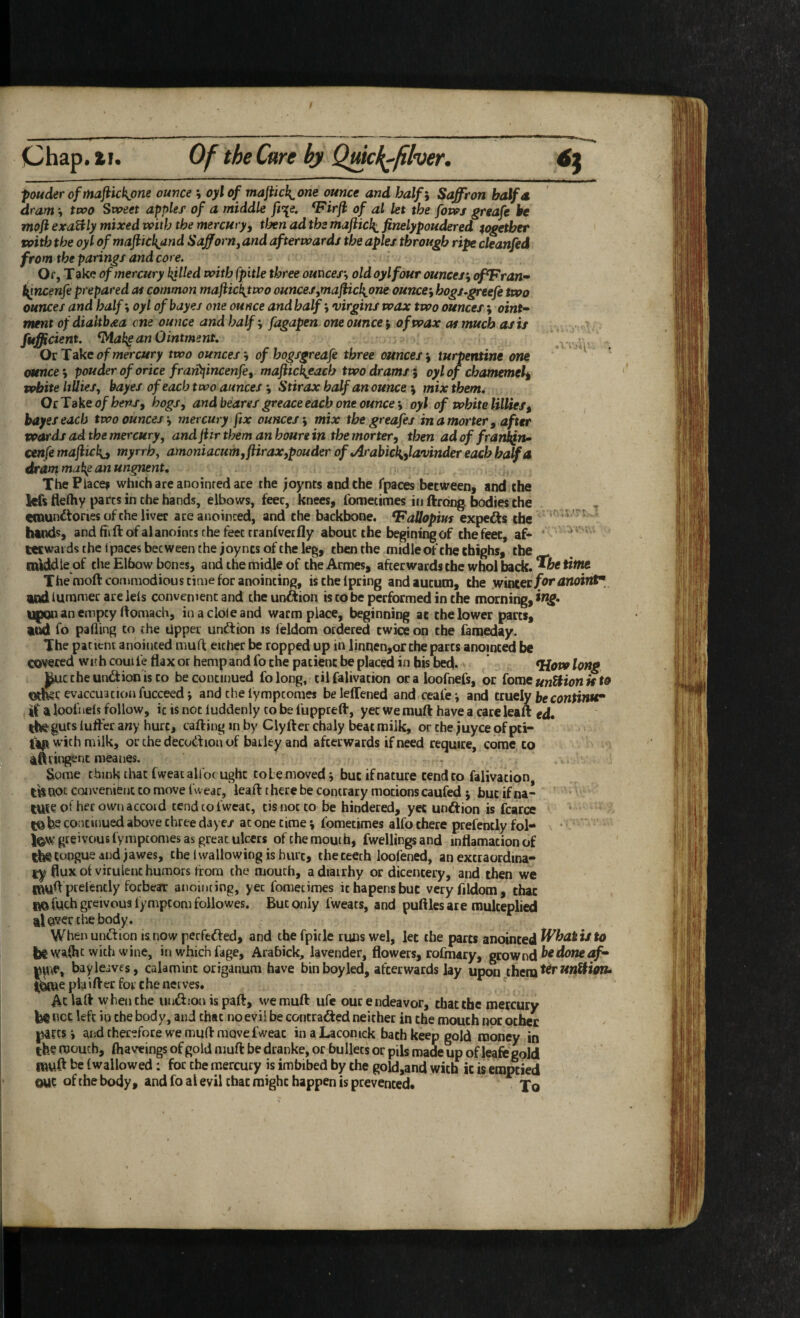 Chap. 21. Of the Cure by Quick-silver. 63
pouder of mastick one ounce ; oyl of mastick one ounce and half; Saffron half a
dram ; two Sweet apples of a middle size. First of al let the sows grease be
most exactly mixed with the mercury, then ad the mastick finely poudered together
with the oyl of mastick and Safforn, and afterwards the aples through ripe cleansed
from the parings and core.
Or, Take of mercury killed with spitle three ounces; old oyl four ounces; of Fran-
kincense prepared as common mastick two ounces, mastick one ounce; hogs-greese two
ounces and half; oyl of bayes one ounce and half; virgins wax two ounces; oint-
ment of dialthæa one ounce and half; fagapen one ounce; of wax as much as is
sufficient. Make an Ointment.
Or Take of mercury two ounces; of hogs grease three ounces; turpentine one
ounce; pouder of orice frankincense, mastick each two drams; oyl of chamemel,
white lillies, bayes of each two aunces; Stirax half an ounce; mix them.
Or Take of hens, hogs, and beares greace each one ounce; oyl of white lillies,
bayes each two ounces; mercury six ounces; mix the greases in a morter, after
wards ad the mercury, and stir them an houre in the morter, then ad of frankin-
cense mastick, myrrh, amoniacum, stirax, pouder of Arabick, lavinder each half a
dram make an ungnent.
The Places which are anointed are the joynts and the spaces between, and the
less fleshy parts in the hands, elbows, feet, knees, sometimes in strong bodies the
emunctories of the liver are anointed, and the backbone. Fallopius expects the
hands, and first of al anoints the feet transversly about the begining of the feet, af-
terwards the spaces between the joynts of the leg, then the midle of the thighs, the
middle of the Elbow bones, and the midle of the Armes, afterwards the whol back. The time
The most commodious time for anointing, is the spring and autum, the winter for anoint-
and summer are less convenient and the unction is to be performed in the morning, ing.
upon an empty stomach, in a close and warm place, beginning at the lower parts,
and so passing to the upper unction is seldom ordered twice on the sameday.
The patient anointed must either be ropped up in linnen, or the parts anointed be
covered with course flax or hemp and so the patient be placed in his bed. How long
But the unction is to be continued so long, til salivation or a loosness, or some unction is to
other evaccuation succeed; and the symptomes be lessened and cease; and truely be continu-
if a loosness follow, it is not suddenly to be supprest, yet we must have a care least ed.
the guts suffer any hurt, casting in by Clyster chaly beat milk, or the juyce of pti-
san with milk, or the decoction of barley and afterwards if need require, come to
astringent meanes.
Some think that sweat also ught to be moved; but if nature tend to salivation,
tis not convenient to move sweat, least there be contrary motions caused; but if na-
ture of her own accord tend to sweat, tis not to be hindered, yet unction is scarce
to be continued above three dayes at one time; sometimes also there presently fol-
low greivous symptomes as great ulcers of the mouth, swellings and inflamation of
the tongue and jawes, the swallowing is hurt, the teeth loosened, an extraordina-
ry flux of virulent humors from the mouth, a diarrhy or dicentery, and then we
must presently forbear anointing, yet sometimes it hapens but very sildom, that
no such greivous symptom followes. But only sweats, and pustles are multeplied
al over the body.
When unction is now perfected, and the spitle runs wel, let the parts anointed What is to
be washt with wine, in which sage, Arabick, lavender, flowers, rosmary, grownd be done af-
pine, bayleaves, calamint origanum have bin boyled, afterwards lay upon them ter unction.
some plaister for the nerves.
At last when the unction is past, we must use our endeavor, that the mercury
be not left in the body, and that no evil be contracted neither in the mouth nor other
parts; and therefore we must move sweat in a Laconick bath keep gold money in
the mouth, shaveings of gold must be dranke, or bullets or pils made up of leafe gold
must be swallowed: for the mercury is imbibed by the gold, and with it is emptied
out of the body, and so al evil that might happen is prevented. To